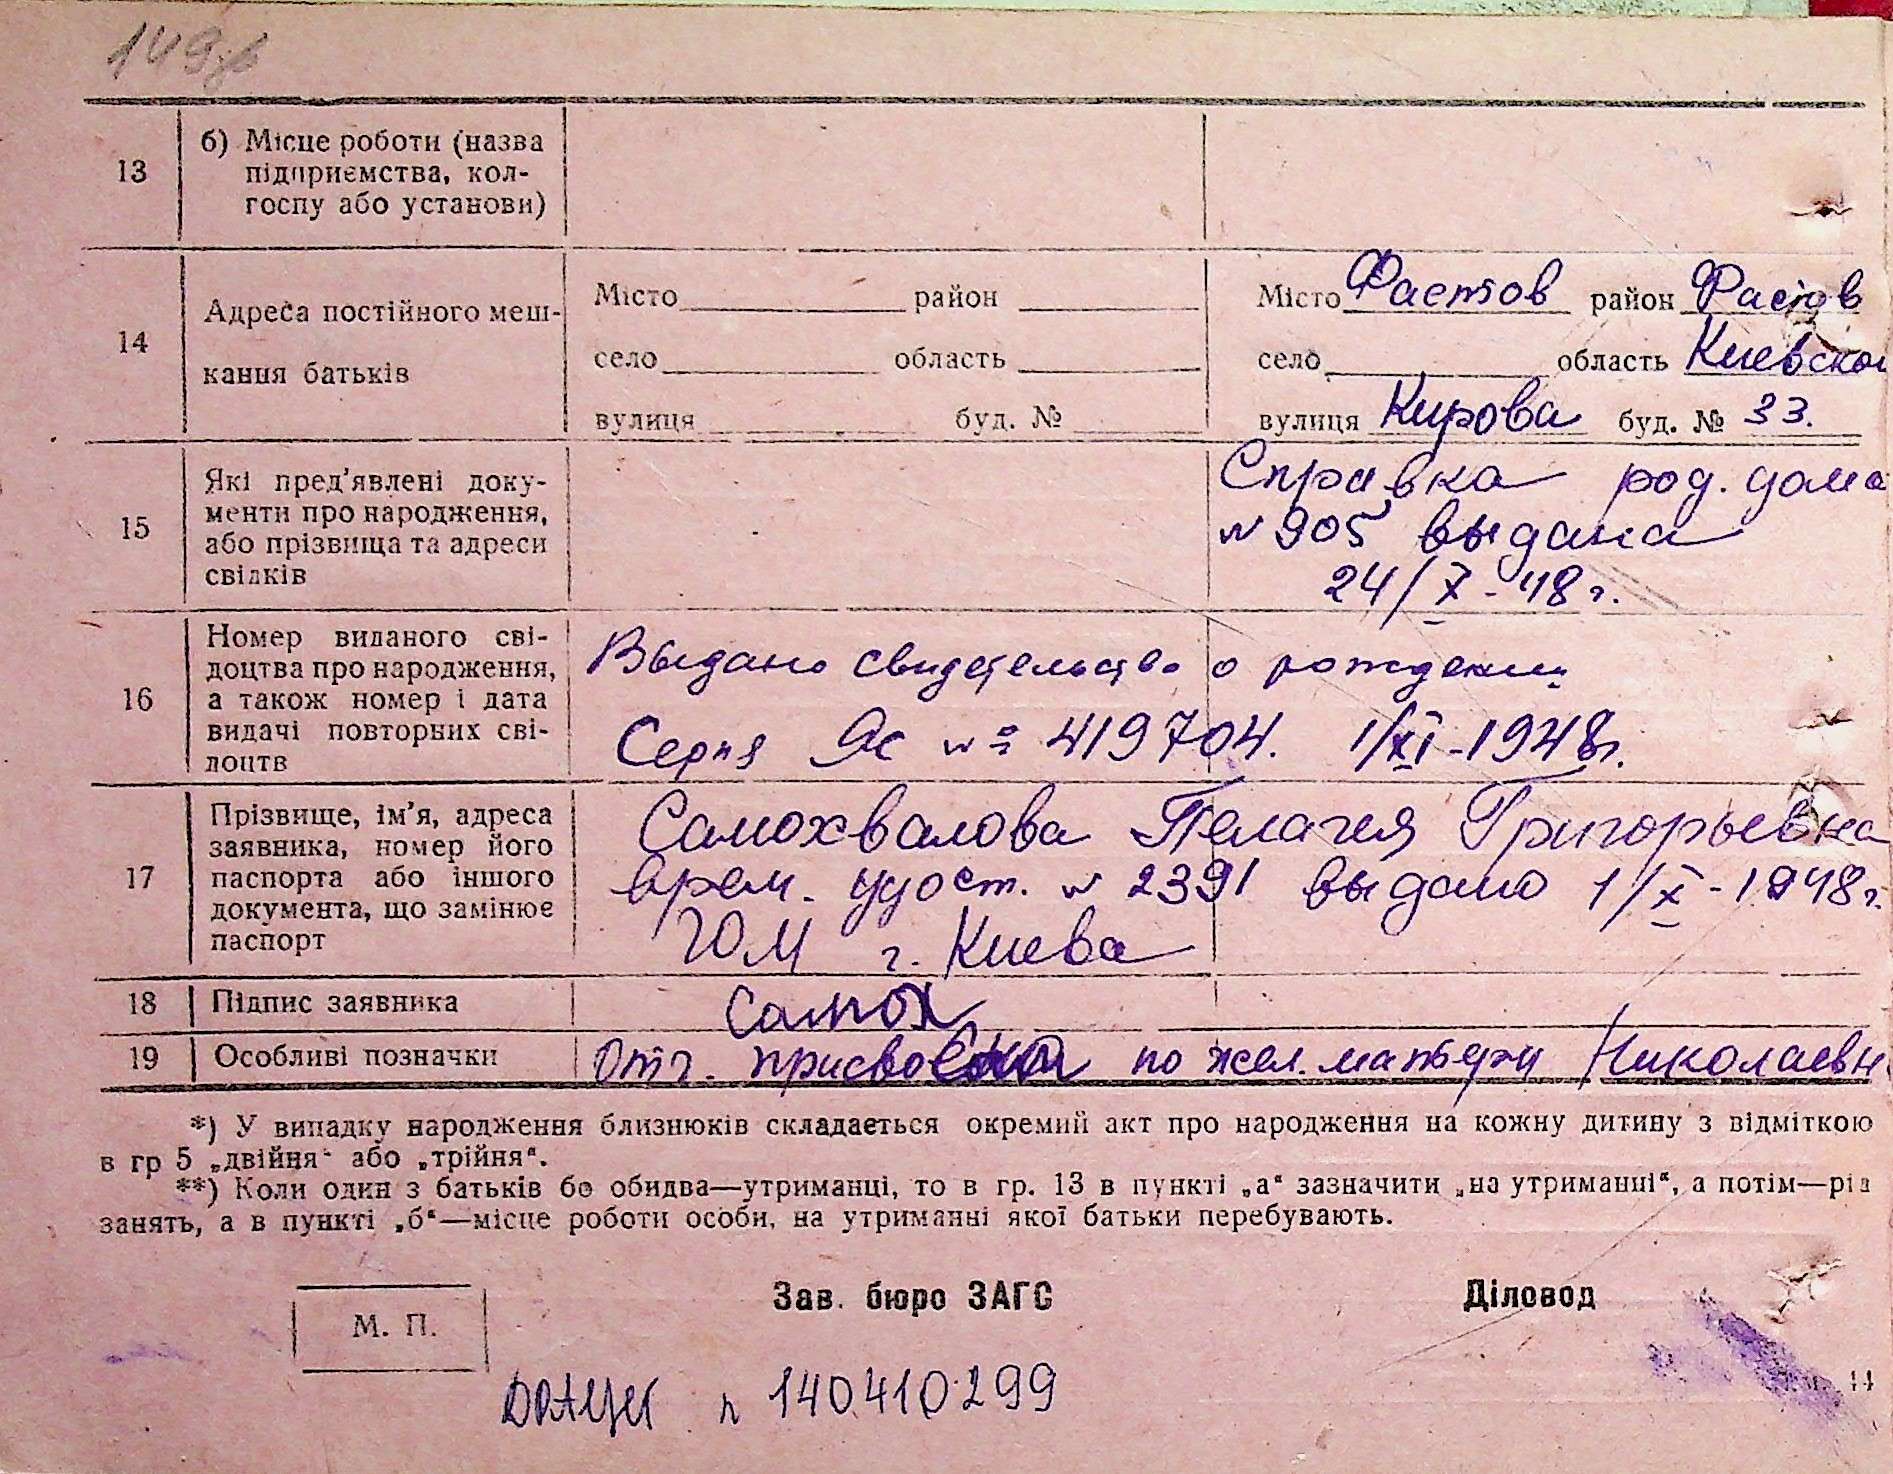 149зв
13
б) Місце роботи (назва
підприємства, кол-
госпу або установи)
14
Адреса постійного меш-
кання батьків
Місто район
село область
вулиця буд. №
Місто Фастов район Фастов
село область Киевской
вулиця Кирова буд. № 33.
15
Які пред'явлені доку-
менти про народження,
або прізвища та адреси
свідків
Справка род. дома
№ 905 выдана
24/X - 48 г.
16
Номер виданого сві-
доцтва про народження,
а також номер і дата
видачі повторних сві-
доцтв
Выдано свидетельство о рождении
Серия ЯС № 419704. 1/XI - 1948г.
17
Прізвище, ім'я, адреса
заявника, номер його
паспорта або іншого
документа, що замінює
паспорт
Самохвалова Пелагея Григорьевна
врем. удост. № 2391 выдано 1/X - 1948г.
ГОМ г. Киева
18
Підпис заявника
Самох
19
Особливі позначки
Отч. присвоено по жел. матери Николаевн
*) У випадку народження близнюків складається окремий акт про народження на кожну дитину з відміткою
в гр 5 „двійня“ або „трійня“.
**) Коли один з батьків бо обидва—утриманці, то в гр. 13 в пункті „а“ зазначити „на утриманні“, а потім—рід
занять, а в пункті „б“—місце роботи особи, на утриманні якої батьки перебувають.
М. П.
Зав. бюро ЗАГС
Діловод
140410299